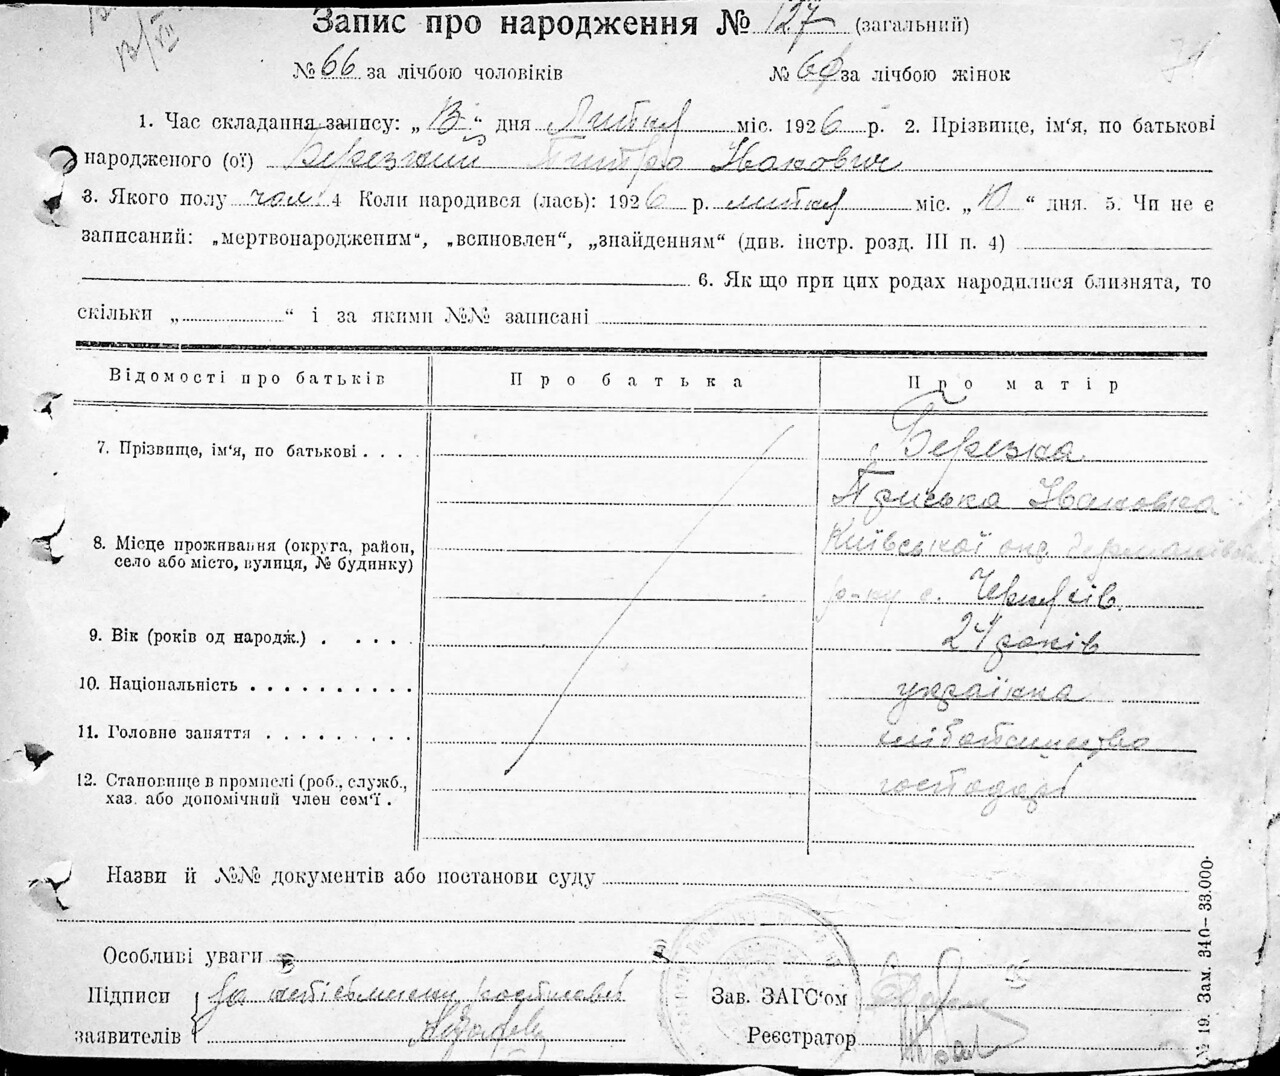 13/VIII
Запис про народження № 127 (загальний)
№ 66 за лічбою чоловіків № за лічбою жінок
1. Час складання запису: „13“ дня Липня міс. 1926 р. 2. Прізвище, ім'я, по батькові
народженого (ої) Петро Іванович
3. Якого полу чол. 4 Коли народився (лась): 1926 р. липня міс. „10“ дня. 5. Чи не є
записаний: „мертвонародженим“, „всиновлен“, „знайденням“ (див. інстр. розд. III п. 4)
6. Як що при цих родах народилися близнята, то
скільки „ “ і за якими №№ записані
Відомості про батьків Про батька Про матір
7. Прізвище, ім'я, по батькові . . . . Березка
Пріська Івановна
8. Місце проживання (округа, район,
село або місто, вулиця, № будинку)
Київської окр.
р-ну с.
9. Вік (років од народж.) . . . . . 24 років
10. Національність . . . . . . . . . . українка
11. Головне заняття . . . . . . . . . хліборобство
12. Становище в промислі (роб., служб.,
хаз. або допомічний член сем'ї .
Назви й №№ документів або постанови суду
Особливі уваги
Підписи За
заявителів
Зав. ЗАГС'ом
Реєстратор
№ 19. Зам. 340—33.000.